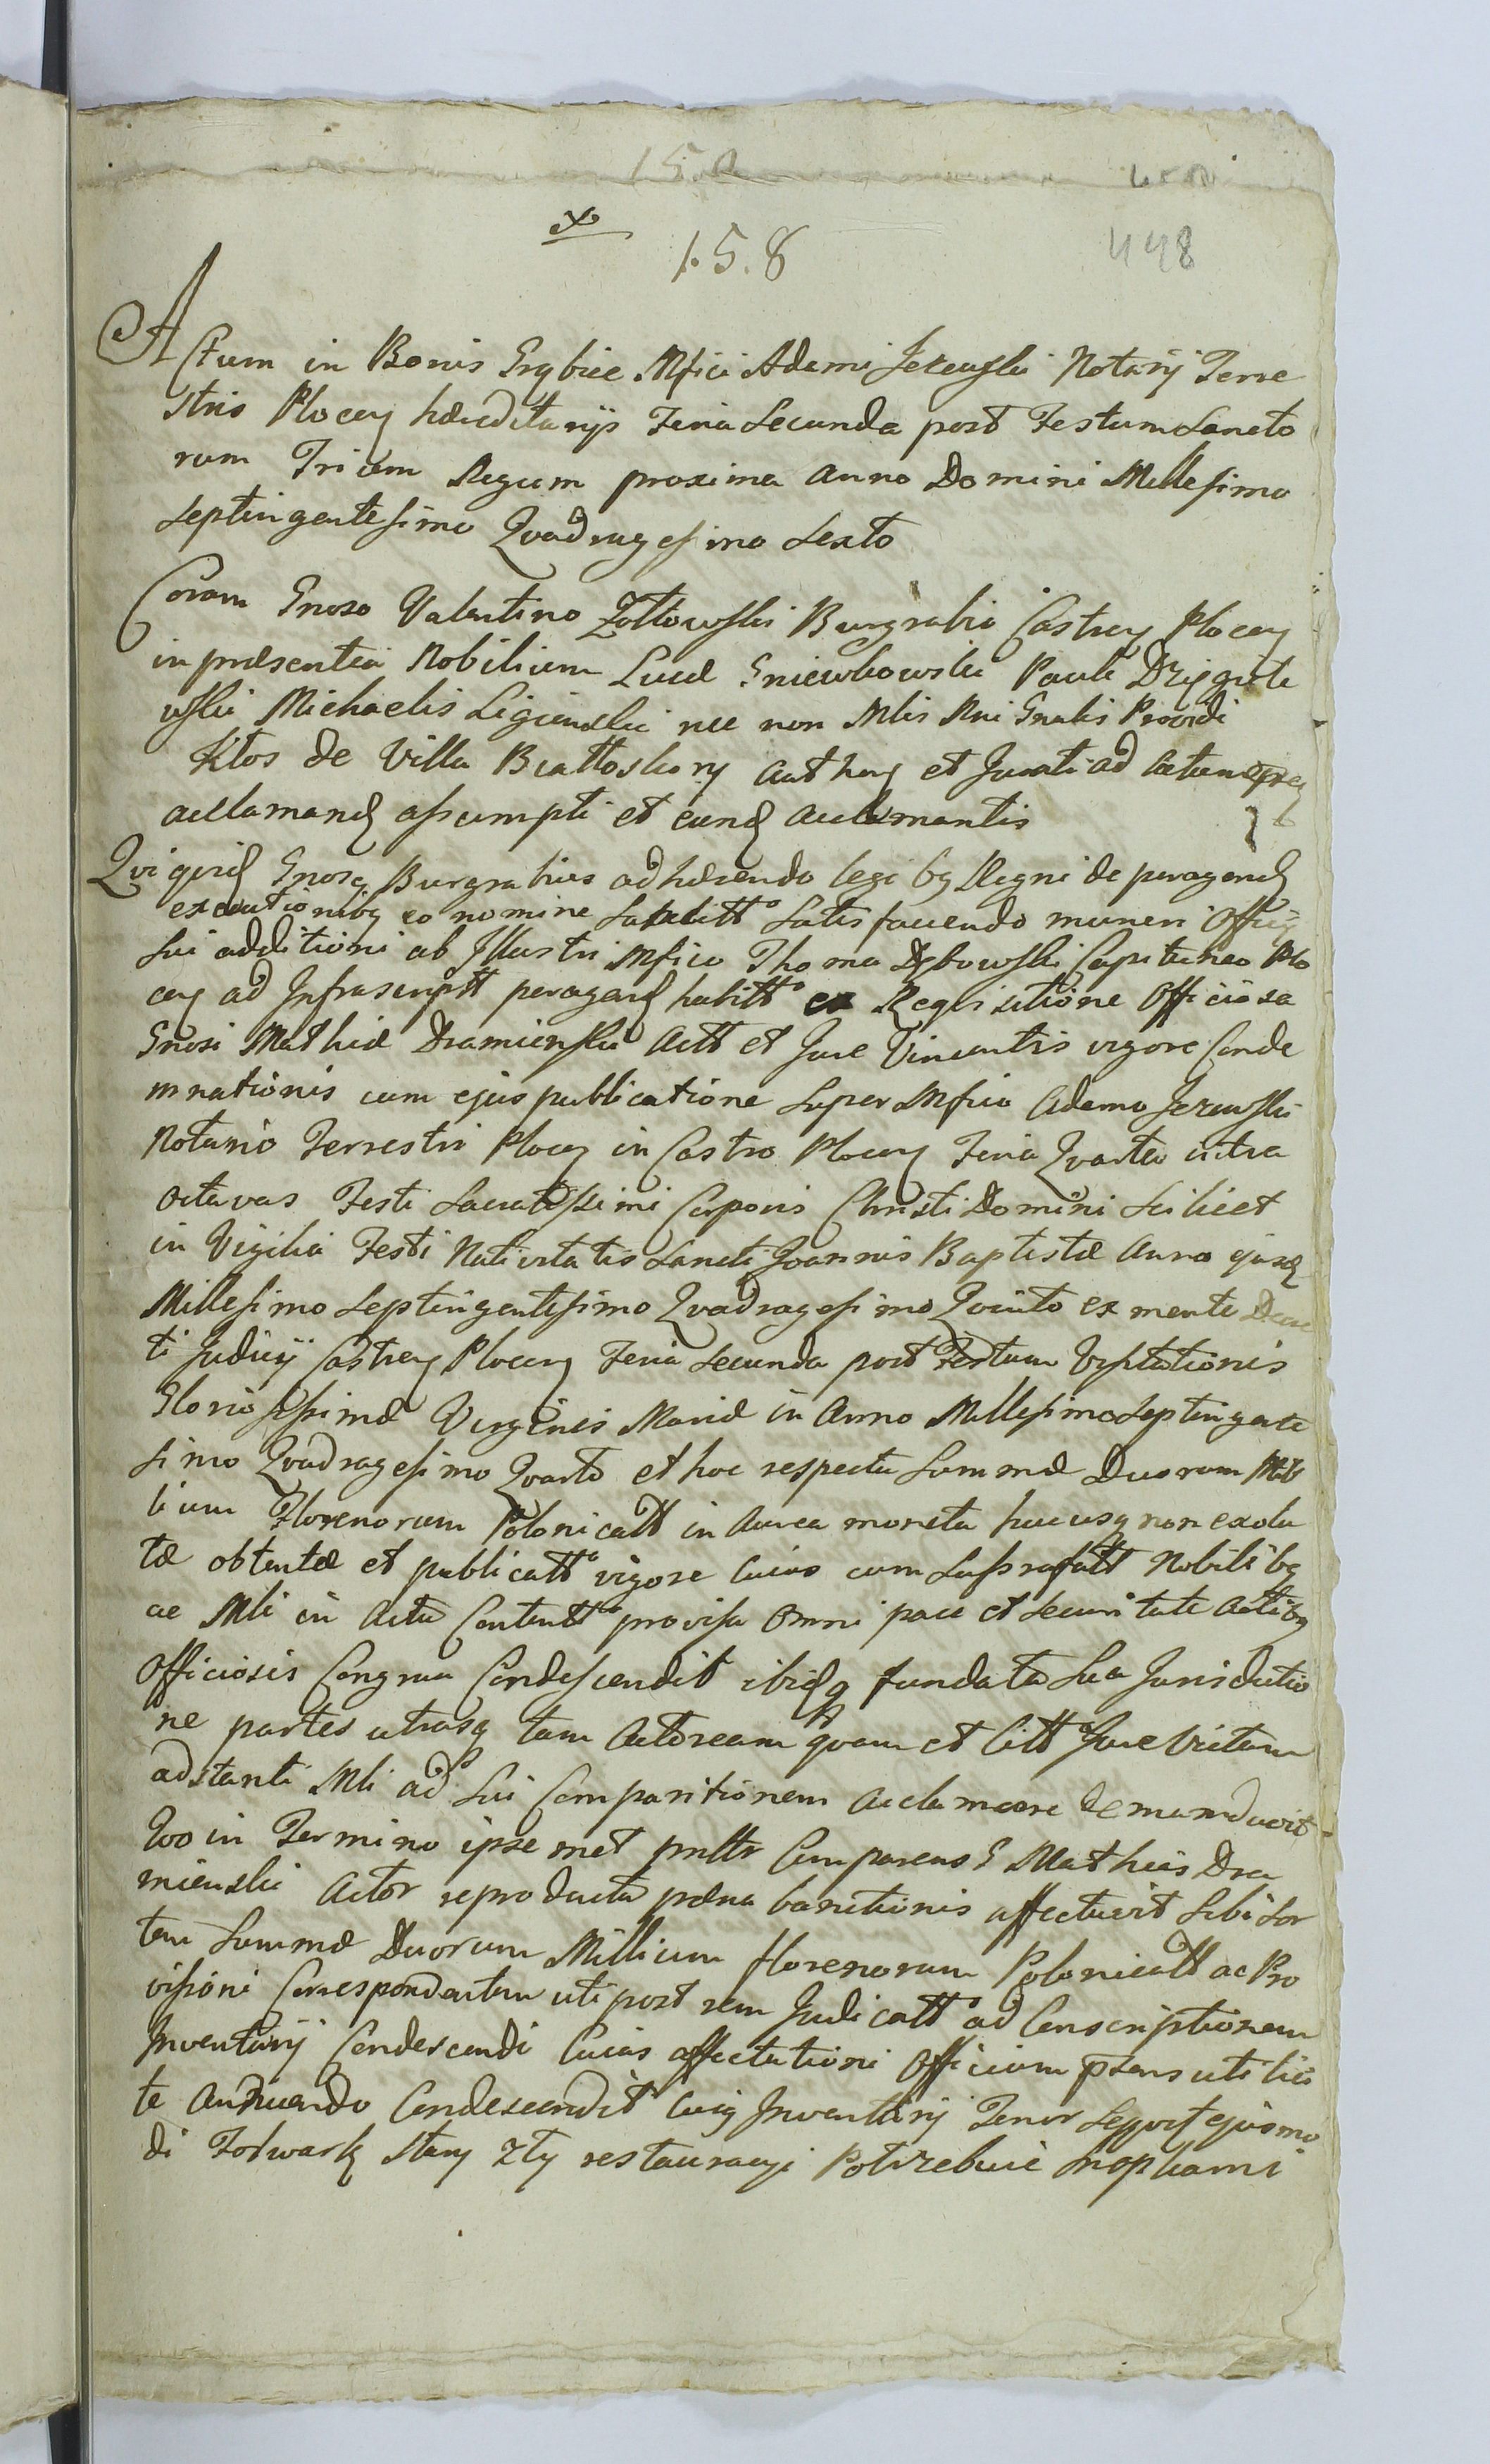 158
448
Actum in Bonis Grębice Mfici Adami Jezewski Notarÿ Terre
stris Plocen hæreditarÿs Feria Secunda post Festum Sancto
rum Trium Regum proxima Anno Domini Millesimo
Septingentesimo Qvadragesimo Sexto
Coram Gnoso Valentino Zołtowski Burgrabio Castren Plocen
in præsentia Nobilium Lucæ Gniewkowski Pauli
Michaelis Ligienski nec non Mlis Rni Gnalis Providi
Ktos de Villa Białłoskory authen et Jurati ad actum
acclamand assumpti et eund acclamantis
Qui quid Gnosq Burgrabius adhærendo legibq Regni de peragend
executionibq eo nomine Satisfaciendo muneri Officÿ
Sui additioni ab Illustri Mfico Thoma Dębowski Capitaneo Plo
cen ad Infrascriptt peragend habitt ex Reqvisitione Officiosa
Gnosi Mathiæ Dramienski Actt et Jure Vincentis vigore Conde
mnationis cum ejus publicatione Super Mfico Adamo Jezewski
Notario Terrestri Plocen in Castro Plocen Feria Qvarta intra
octavas Festi Sacratissimi Corporis Christi Domini Scilicet
in Vigilia Festi Nativitatis Sancti Joannis Baptistæ Anno ejusd
Millesimo Septingentesimo Qvadragesimo Qvinto ex mente Decre
ti Judicÿ Castren Plocen Feria Secunda post Festum Visitationis
Gloriosissimæ Virginis Mariæ in Anno Millesimo Septingente
simo Qvadragesimo Qvarto et hoc respectu Summæ Duorum Mil
lium Florenorum Polonicatt in Aurea moneta hucusq non exolu
tæ obtentæ et publicatt vigore Cuius cum Suprafatt Nobilibq
ac Mli in Actu Contentt provisa Omni pace et Securitate Actibq
Officiosis Congrua Condescendit ibidq fundata Sua Jurisdictio
ne partes utrasq tam Actoream qvam et Citt Jure Victam
adstanti Mli ad Sui Comparitionem acclamare demandavit
Qvo in Termino ipse met pnltr Comparens G Mathias Dra
mienski Actor reproducta pæna banitionis affectavit Sibi Sor
tem Summæ Duorum Millium florenorum Polonicatt ac Pro
visioni Correspondentem uti post rem Judicatt ad Conscriptionem
Inventarÿ Condescendi Cuius affectationi Officium pæns uti lici
te Annuendo Condescendit Cuiq Inventarÿ Tenor Seqvit ejusmo
di Folwark Stary Zły restauracyi Potrzebuie Snopkami